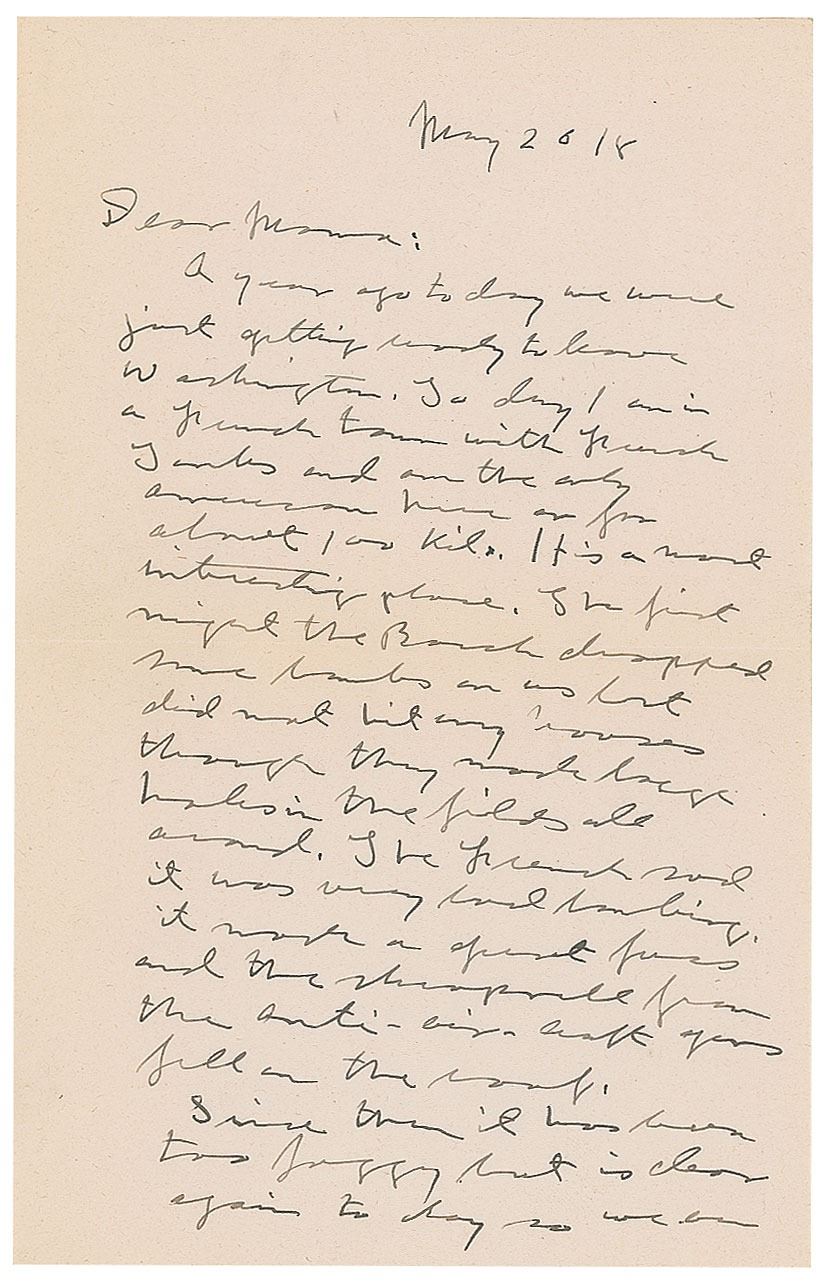 May 20 18
Dear Mama:
A year ago to day we were
just getting ready to leave
Washington. To day I am in
a french town with french
Tanks and am the only
american here or for
about 100 Kilo. It is a most
interesting place. The first
night the Boach dropped
some bombs on us but
did not hit any houses
though they made large
holes in the fields all
around. The french said
it was very bad bombing.
it made a great fuss
and the shrapnell from
the anti-air-craft guns
fell on the roof.
Since then it has been
too foggy but is clear
again to day so we